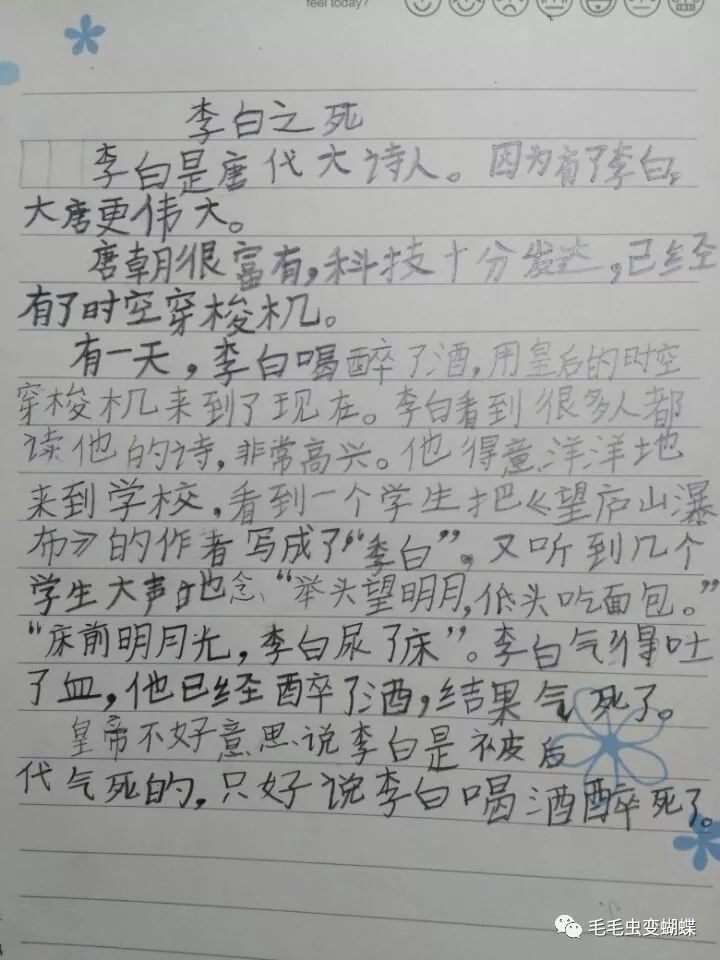 feel today?
李白之死
李白是唐代大诗人。因为有了李白,
大唐更伟大。
唐朝很富有,科技十分发达,已经
有了时空穿梭机。
有一天,李白喝醉了酒,用皇后的时空
穿梭机来到了现在。李白看到很多人都
读他的诗,非常高兴。他得意洋洋地
来到学校,看到一个学生把《望庐山瀑
布》的作者写成了“李白”。又听到几个
学生大声地念“举头望明月,低头吃面包。”
“床前明月光,李白尿了床”。李白气得吐
了血,他已经醉了酒,结果气死了。
皇帝不好意思说李白是被后
代气死的,只好说李白喝酒醉死了。
毛毛虫变蝴蝶